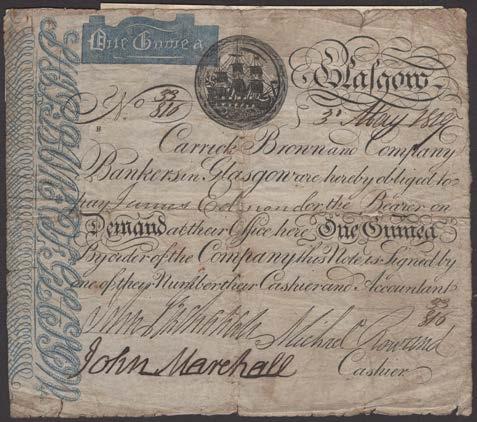 One Guinea
Glasgow
No 33/310
3d May 1829
B
Carrick Brown and Company
Bankers in Glasgow are hereby obliged to
pay James or the Bearer on
Demand at their Office here One Guinea
By order of the Company this Note is signed by
one of their Number their Cashier and Accountant
33/310
John Michael Rowand
John Marshall
Cashier